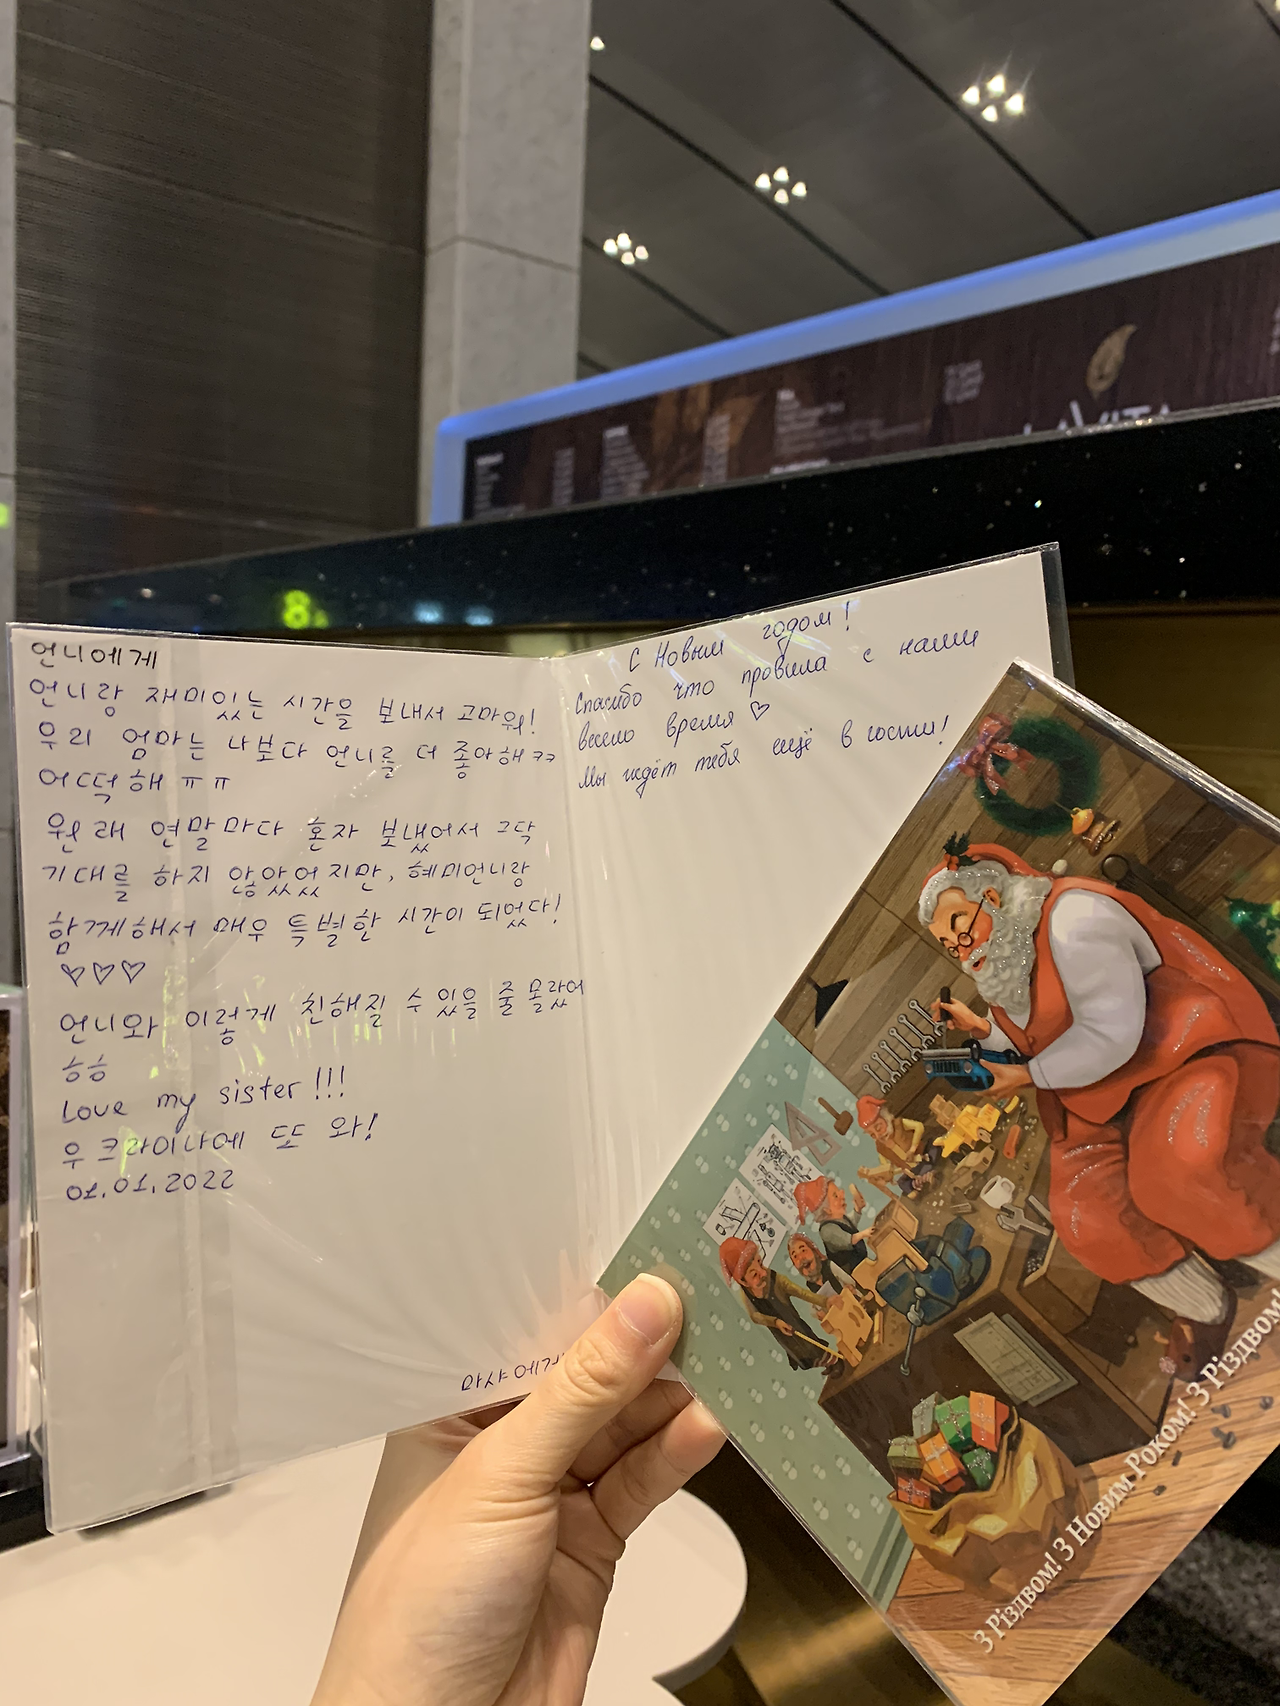 언니에게
언니랑 재미있는 시간을 보내서 고마워!
우리 엄마는 나보다 언니를 더 좋아해 ㅋㅋ
어떡해 ㅠㅠ
원래 연말마다 혼자 보냈어서 그닥
기대를 하지 않았었지만, 혜미언니랑
함께해서 매우 특별한 시간이 되었다!
♡♡♡
언니와 이렇게 친해질 수 있을 줄 몰랐어
ㅎㅎ
Love my sister!!!
우크라이나에 또 와!
01.01.2022
마샤
С Новым годом!
Спасибо что провила с нами
весело время ♡
Мы ждём тебя ещё в гости!
З Різдвом! З Новим Роком! З Різдвом!
LAVITA
8